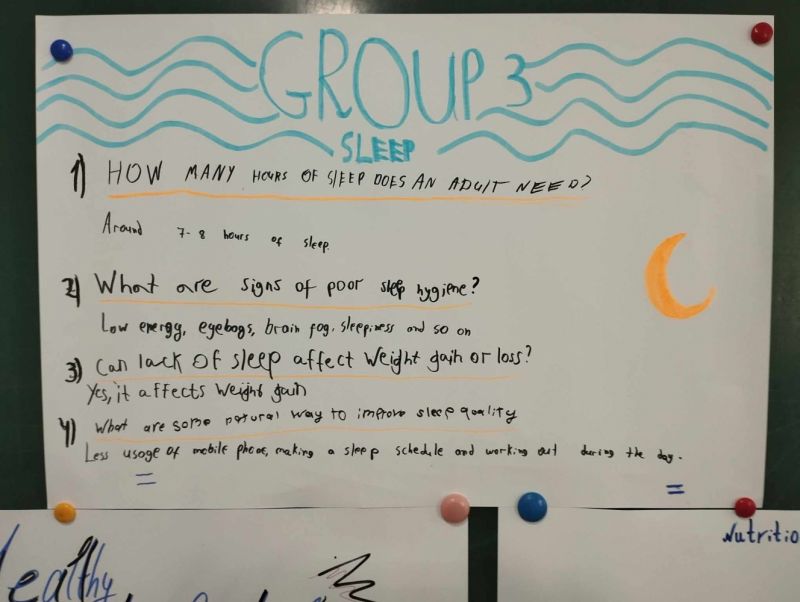 GROUP 3
SLEEP
1) HOW MANY HOURS OF SLEEP DOES AN ADULT NEED?
Around 7-8 hours of sleep.
2) What are signs of poor sleep hygiene?
Low energy, eyebags, brain fog, sleepiness and so on
3) Can lack of sleep affect weight gain or loss?
Yes, it affects weight gain
4) What are some natural way to improve sleep quality
Less usage of mobile phone, making a sleep schedule and working out during the day.
Healthy
Nutritio